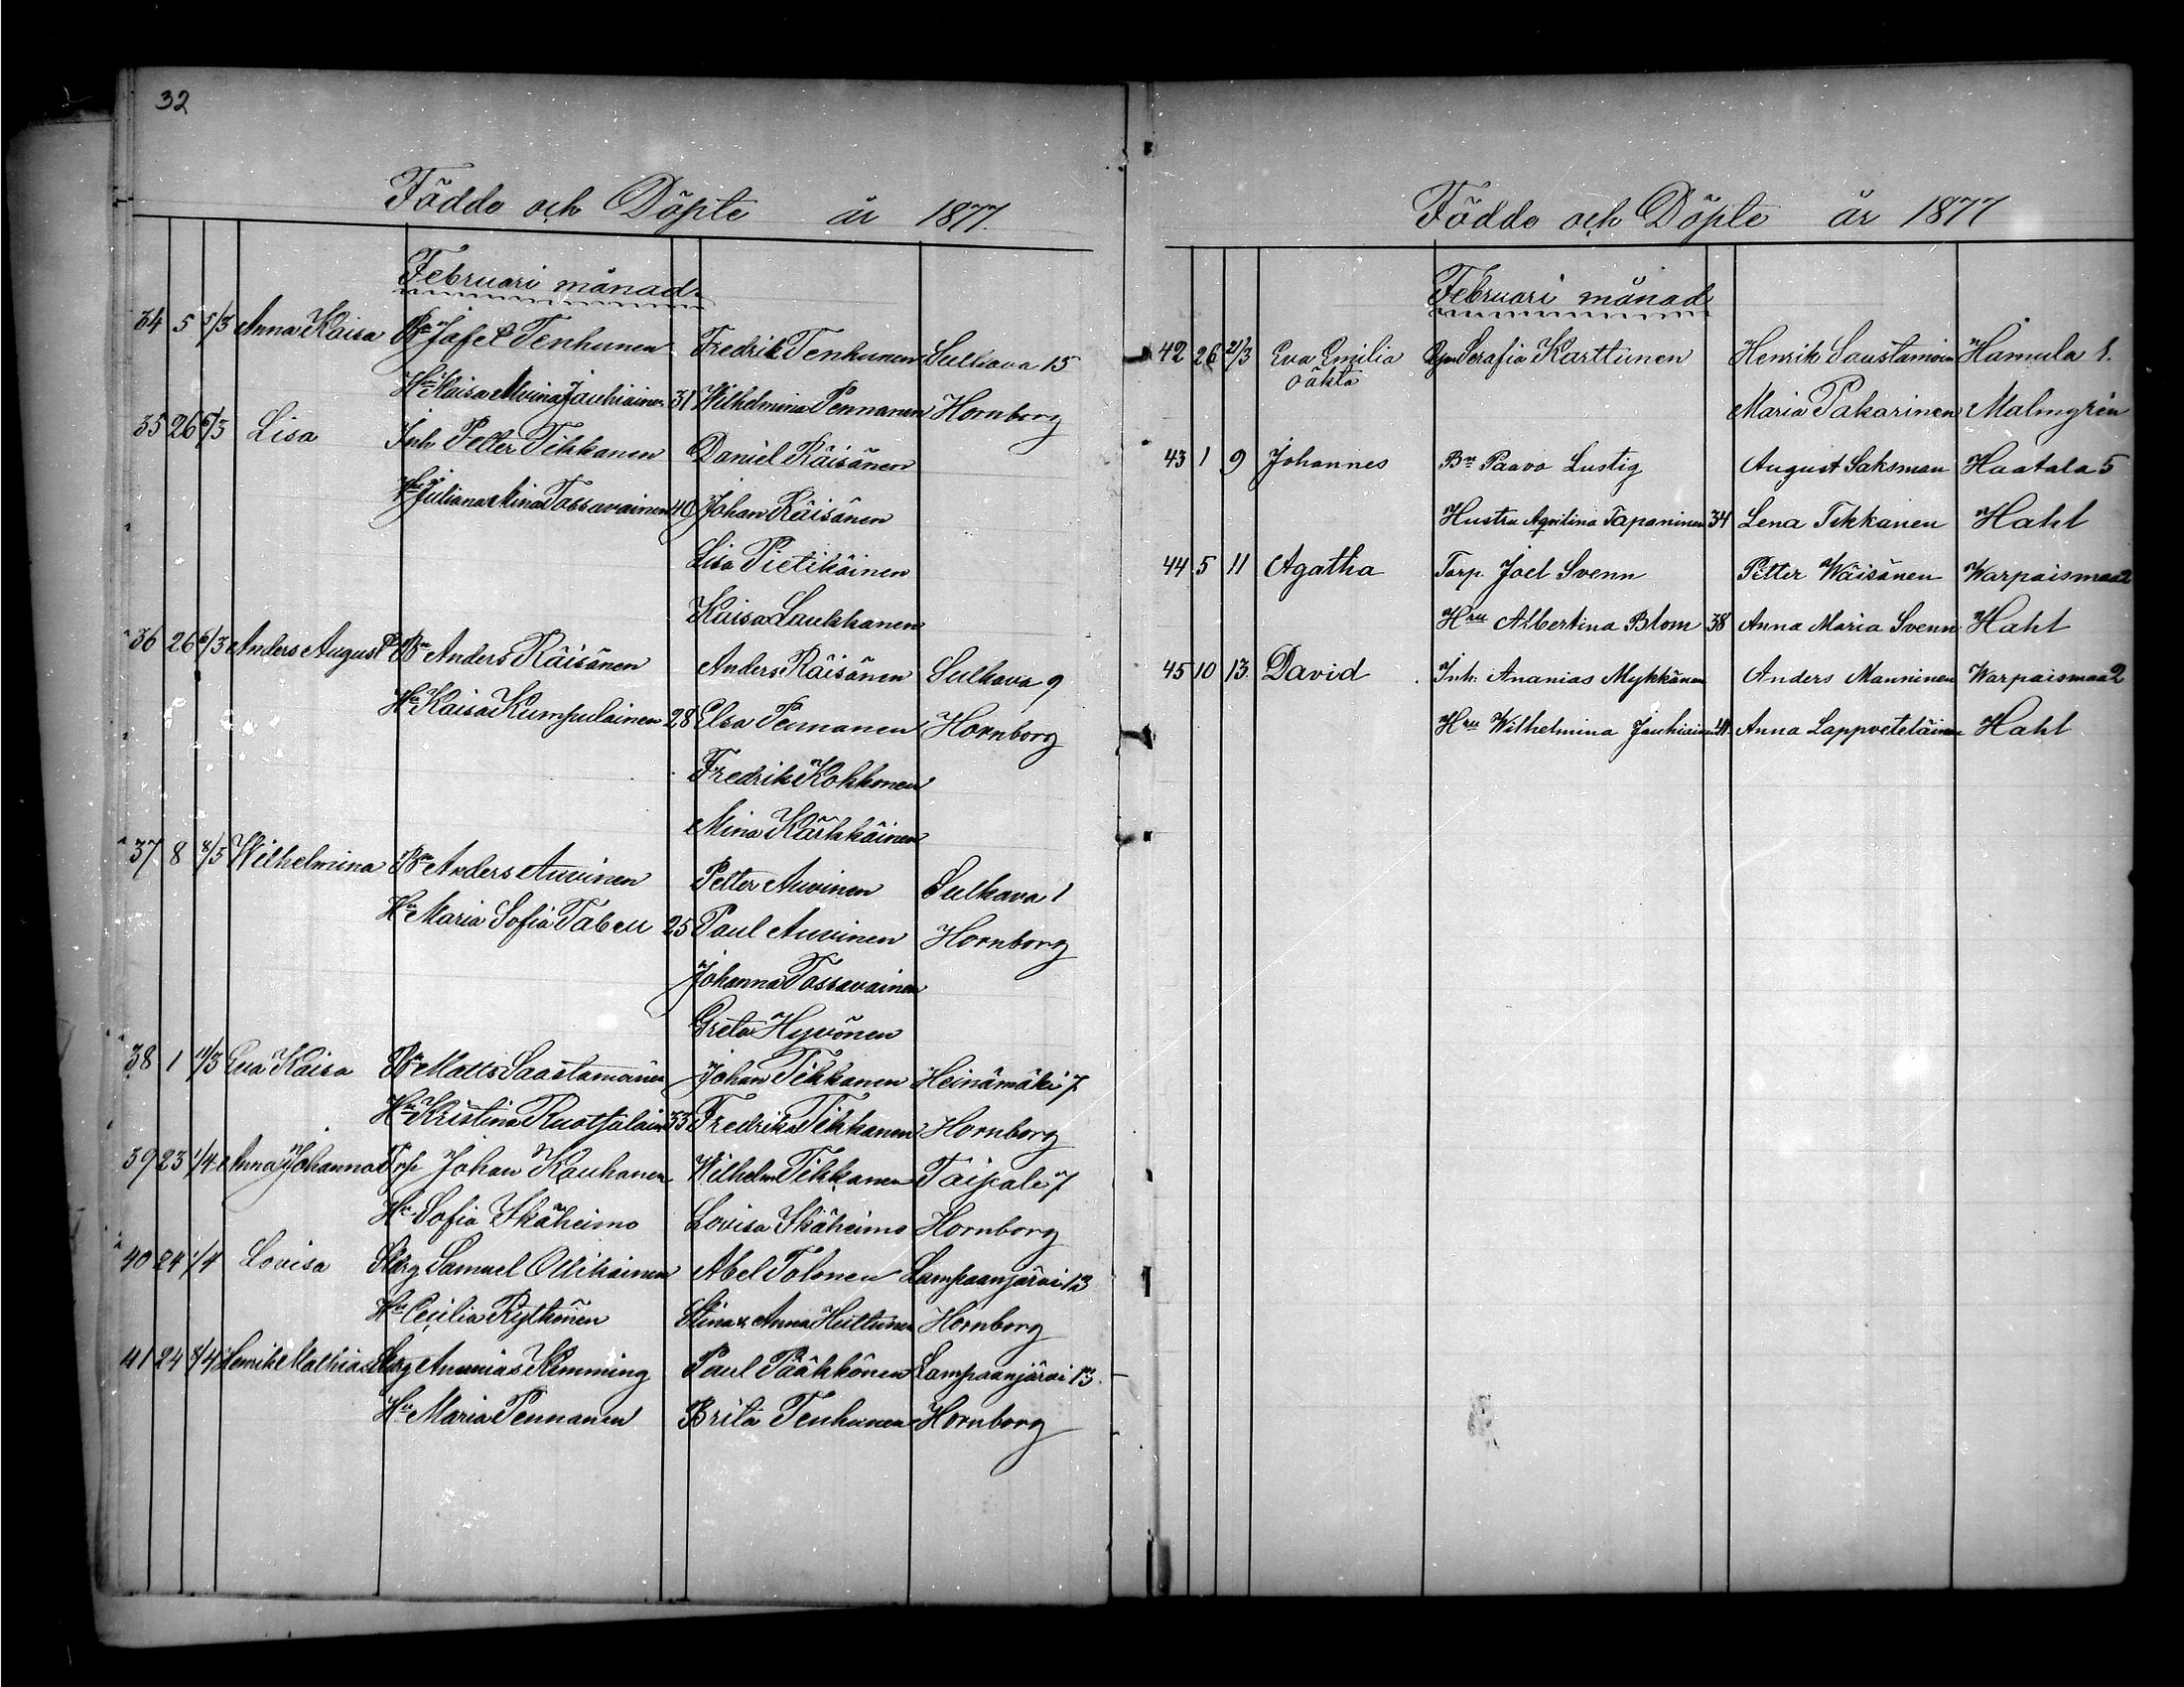 32
Födde och Döpte år 1877.
Februari månad.
34 5 5/3 Anna Kaisa Bn Jafet Tenhunen Fredrik Tenhunen Sulkava 15
Hu Kaisa Alvina Jauhiainen 31 Wilhelmina Pennanen Hornborg
35 26 6/3 Lisa Inh Petter Tikkanen Daniel Räisänen
Hu Juliana Mina Tossavainen 40 Johan Räisänen
Lisa Pietikäinen
Kaisa Laukkanen
36 26 6/3 Anders August Bn Anders Räisänen Anders Räisänen Sulkava 9
Hu Kaisa Kumpulainen 28 Elsa Pennanen Hornborg
Fredrik Kokkonen
Mina Kärkkäinen
37 8 8/5 Wilhelmina Bn Anders Auvinen Petter Auvinen Sulkava 1
Hu Maria Sofia Tabell 25 Paul Auvinen Hornborg
Johanna Tossavainen
Greta Hyvönen
38 1 11/3 Eva Kaisa Bn Matts Saastamoinen Johan Tikkanen Heinämäki 7
Hu Kristina Ruotsalain 33 Fredrika Tikkanen Hornborg
39 23 1/4 Anna Johanna Trp Johan Kauhanen Wilhelm Tikkanen Taipale 7
Hu Sofia Ikäheimo Lovisa Ikäheimo Hornborg
40 24 1/4 Lovisa Samuel Ollikainen Abel Tolonen Lampaanjärvi 13
Hu Cecilia Rytkönen Stina & Anna Huttunen Hornborg
41 24 8/4 Henrik Mathias Ananias Klemming Paul Pääkkönen Lampaanjärvi 13.
Hu Maria Pennanen Brita Tenhunen Hornborg
Födde och Döpte år 1877
Februari månad
42 26 21/3 Eva Emilia Serafia Karttunen Henrik Saastamoin Hamula 1.
oäkta Maria Pakarinen Malmgrén
43 1 9 Johannes Bn Paavo Lustig August Saksman Haatala 5
Hustru Aqvilina Tapaninen 34 Lena Tikkanen Hahl
44 5 11 Agatha Torp. Joel Svenn Petter Wäisänen Warpaismaa 2
Hru Albertina Blom 38 Anna Maria Svenn Hahl
45 10 13. David Inh. Ananias Mykkänen Anders Manninen Warpaismaa 2
Hru Wilhelmina Jauhiainen 41 Anna Lappveteläinen Hahl